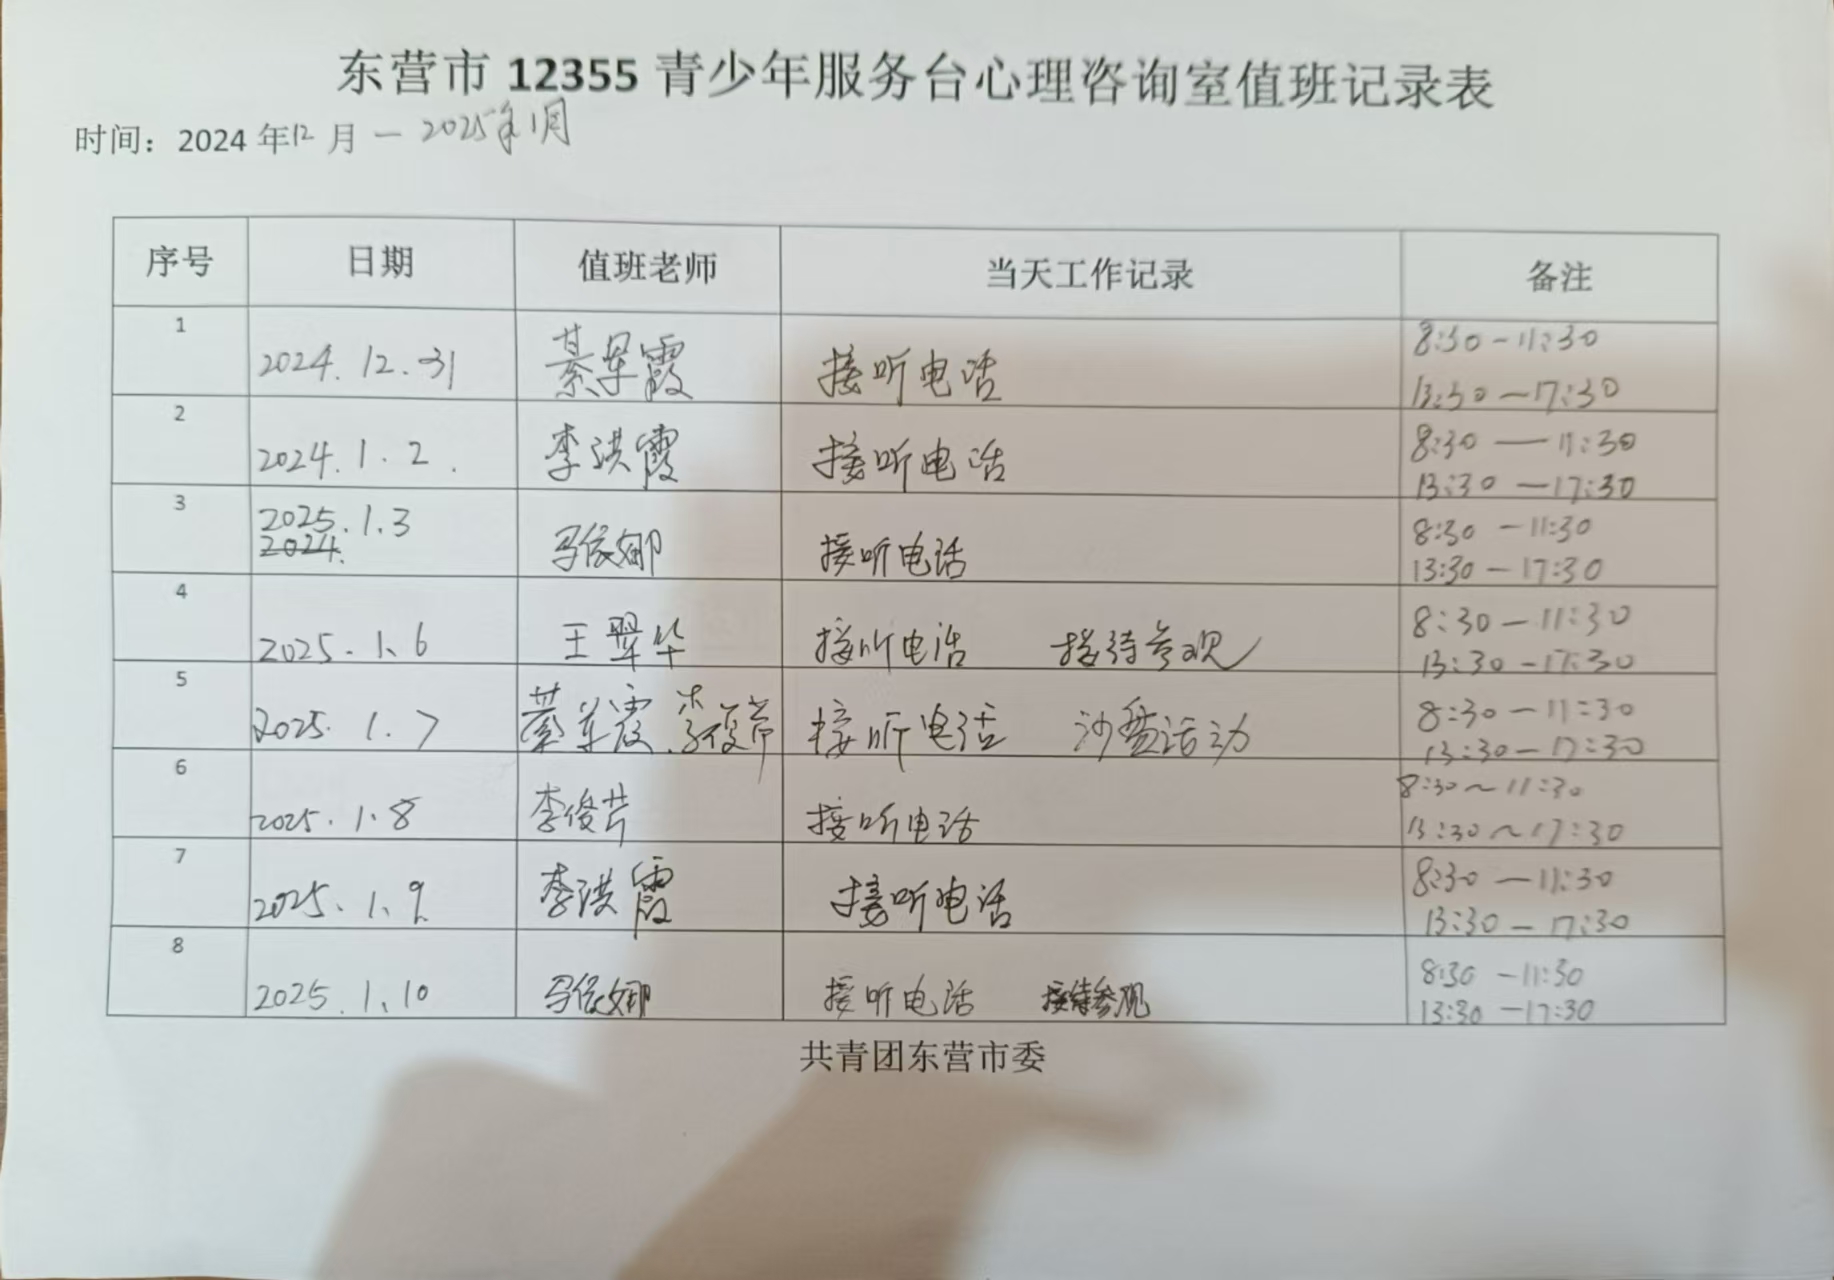 东营市 12355 青少年服务台心理咨询室值班记录表
时间：2024 年12 月 — 2025年1月
序号 日期 值班老师 当天工作记录 备注
1 2024.12.31 綦军霞 接听电话 8:30-11:30
13:30-17:30
2 2024.1.2. 李洪霞 接听电话 8:30-11:30
13:30-17:30
3 2025.1.3 接听电话 8:30-11:30
2024. 13:30-17:30
4 2025.1.6 王翠华 接听电话 接待参观 8:30-11:30
13:30-17:30
5 2025.1.7 綦军霞、李俊芹 接听电话 沙盘活动 8:30-11:30
13:30-17:30
6 2025.1.8 李俊芹 接听电话 8:30~11:30
13:30~17:30
7 2025.1.9 李洪霞 接听电话 8:30-11:30
13:30-17:30
8 2025.1.10 接听电话 接待参观 8:30-11:30
13:30-17:30
共青团东营市委